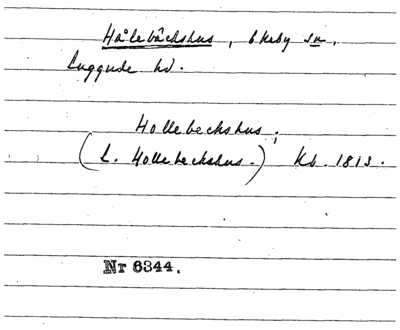 Hålebäckshus, Ekeby sn,
Luggude hd.
Hollebeckshus,
(L. Hollebeckshus.) Kb. 1813.
Nr 6344.